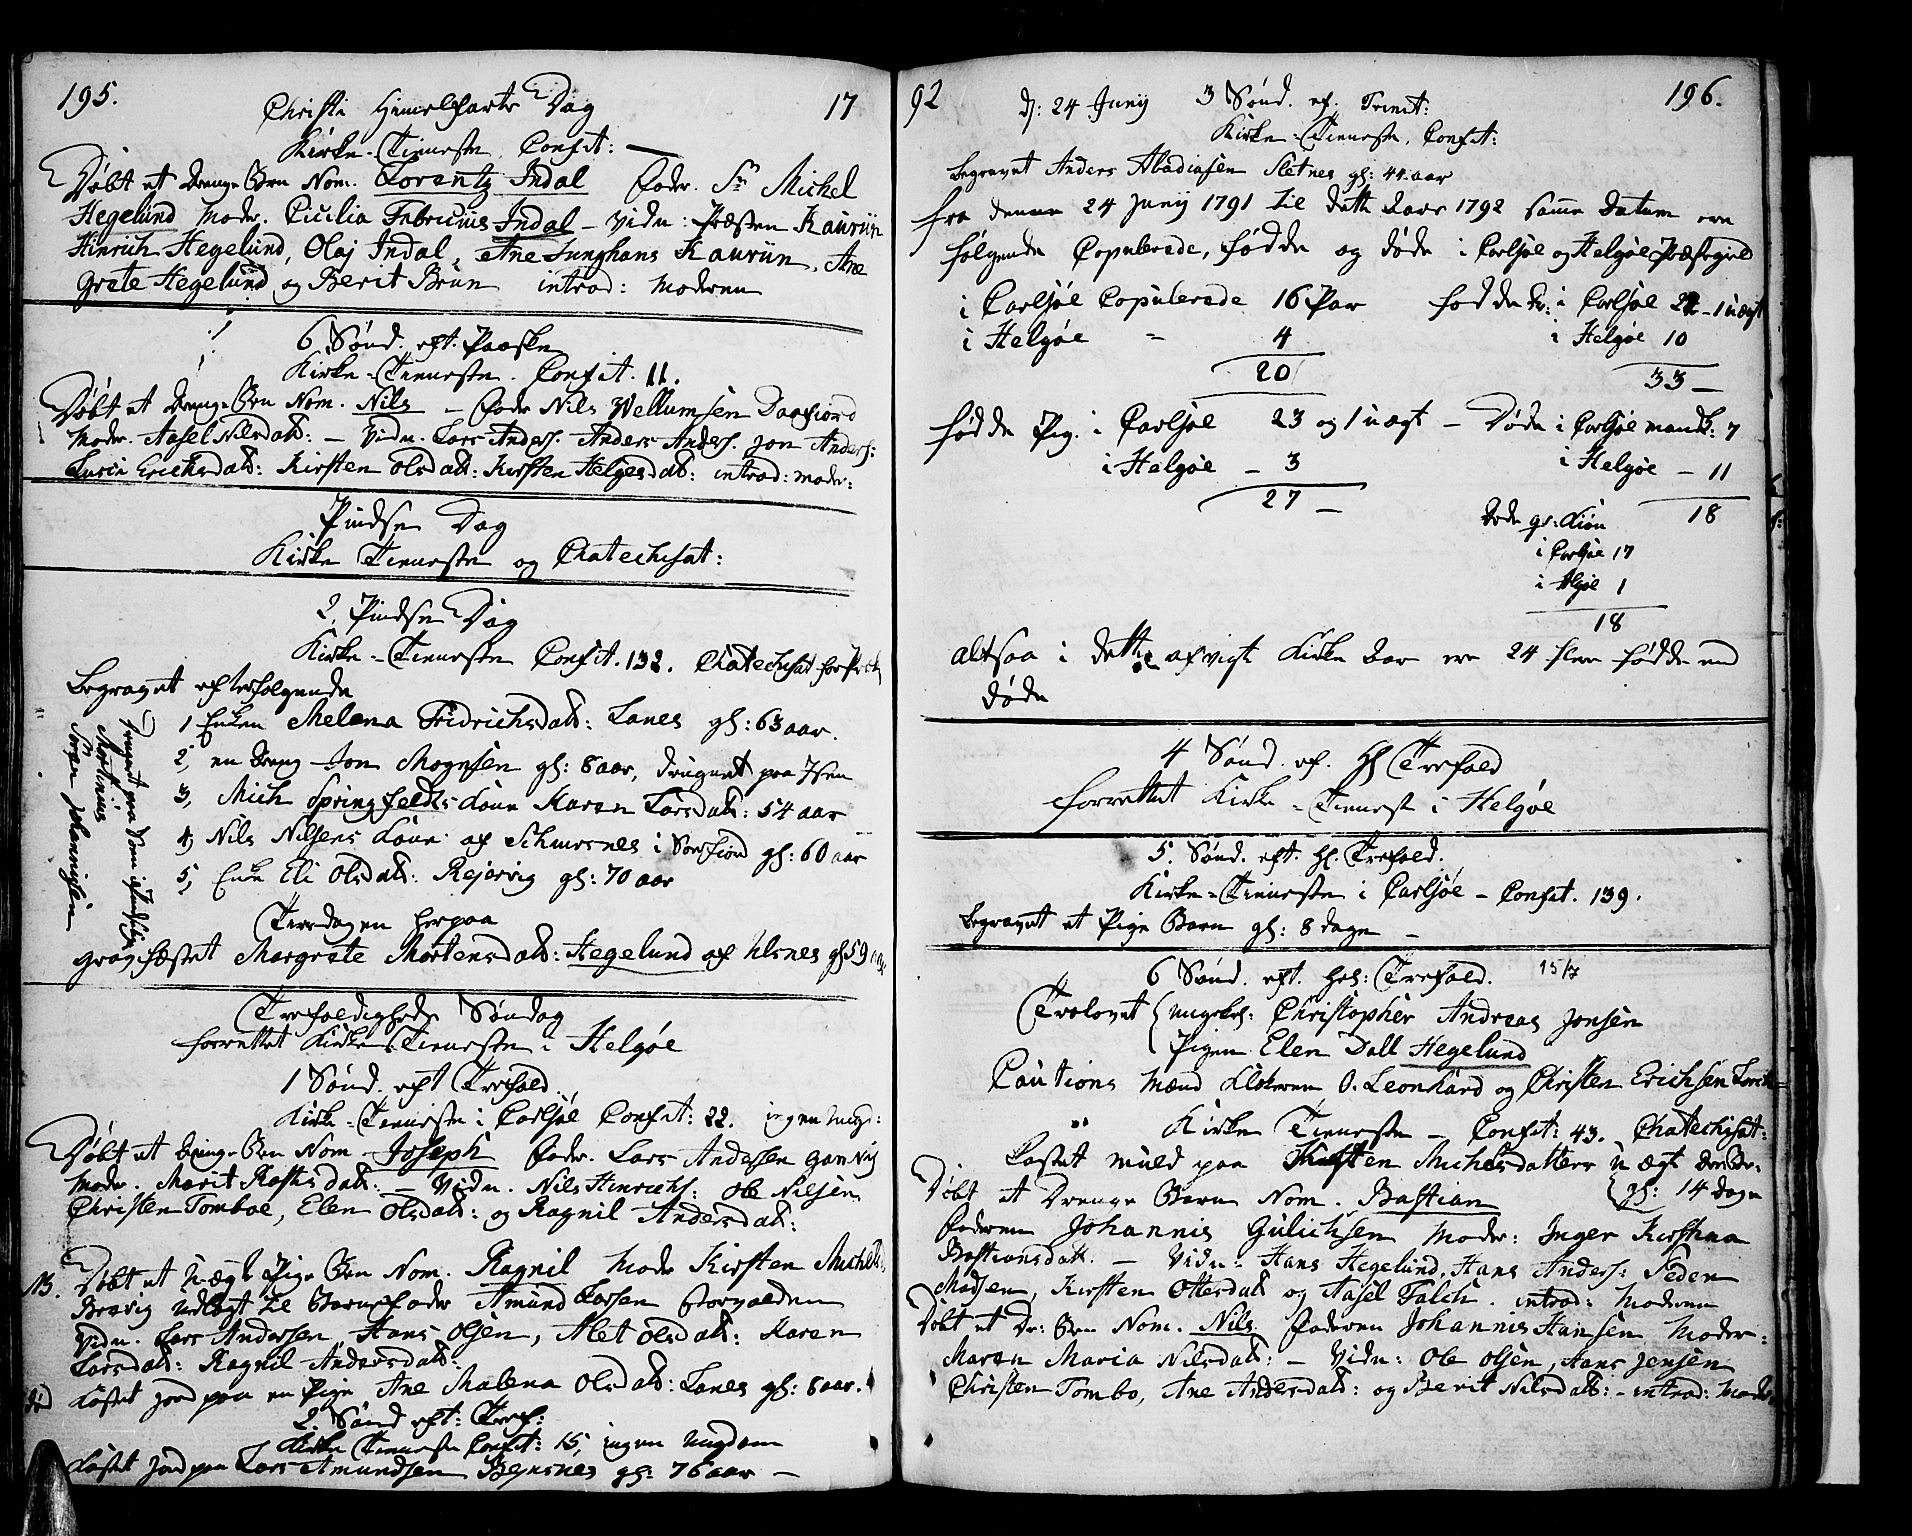 195. 17
Christi Himelfarts Dag
Kirke-Tieneste Confit: —
Døbt et Drenge Brn Nom. Lorentz Indal Fader. Sr Michel
Hegelund Moder. Cicilia Fabricius Indal – Vidn: Præsten Kauriin
Hinrich Hegelund, Olaj Indal, Ane Junghans Kauriin, Ane
Grete Hegelund og Berit Brun introd: Moderen
6 Sønd. eft. Paaske
Kirke-Tieneste. Confit. 11.
Døbt et Drenge Brn Nom. Nils – Fader Nils Wellumsen Daafiord
Moder. Aasel Nilsdatt: – Vidn. Lars Anders. Anders Anders. Jon Anders:
Lusia Erichsdatt: Kirsten Olsdatt: Kirsten Helgesdatt: introd: moder:
Pindse Dag
Kirke Tieneste og Chatechisat:
2. Pindse Dag
Kirke-Tieneste Confit. 132. Chatechisat for Præk
Begravet efterfølgende
1 Enken Melena Fridrichsdatt: Lanes gl: 63 aar.
2, en Dreng Jon Mognsen gl: 8 aar, drugnet paa
3, Mich Springfeldts Kone Karen Larsdatt: 54 aar
4, Nils Nilsens Kone af Schmosnes i Sørfiord gl: 60 aar
5, Enke Eli Olsdatt: Rejervig gl: 70 aar
Drugnet paa Søen
Morthinus
Søren Johannissen
Tirsdagen herpaa
gravfæstet Margrete Mortensdatt: Hegelund af Ulsnes gl 59 aar
Trefoldigheds Søndag
forrettet Kirke Tieneste i Helgøe
1 Sønd. eft Trefold.
Kirke-Tieneste i Carlsøe Confit: 22. ingen Ungd:
Døbt et Drenge Brn Nom. Joseph Fader. Lars Andersen Gamvig
Moder. Marit Rasksdatt. – Vidn. Nils Hinrichs: Ole Nilsen
Christen Tomboe, Elen Olsdatt: og Ragnil Andersdatt:
13. Døbt et U-ægt Pige Brn Nom. Ragnil Mode Kirsten Michels
Bravig Udlagt til Barnefader Amund Larsen Store
Vidn. Lars Andersen, Hans Olsen, Alet Olsdatt: Karen
Larsdatt: Ragnil Andersdatt:
Kastet Jord paa en Pige Ane Malena Olsdatt: Lanes gl: 8 aar.
2 Sønd eft: Tref:
Kirke Tieneste Confit: 15, ingen Ungdom
Kastet Jord paa Lars Amundsen Bensnes gl: 76 aar –
92 196.
d: 24 Junij 3 Sønd. ef. Trinit:
Kirke-Tieneste. Confit:
Begravet Anders Abadiasen Sletnes gl: 44 aar
fra denne 24 Junij 1791 til dette Aar 1792 samme Datum ere
følgende Copulerede, fødde og døde i Carlsøe og Helgøe Præstegield
i Carlsøe Copulerede 16 Par fødde Dr: i Carlsøe 22 – 1 uægt
i Helgøe – 4 i Helgøe 10
20 33 –
fødde Pig. i Carlsøe 23 og 1 uægt – Døde i Carlsøe mandk: 7
i Helgøe – 3 i Helgøe – 11
27 – 18
Døde qv: Kiøn
i Carlsøe 17
i Helgøe 1
18
altsaa i dette afvigte Kirke Aar ere 24 flere fødde end
døde
4 Sønd. ef. Hl Trefold
forrettet Kirke-Tieneste i Helgøe
5. Sønd. eft. Hl. Trefold.
Kirke-Tieneste i Carlsøe – Confit. 139.
Begravet et Pige Barn gl: 8 dage –
6 Sønd. eft. Hel: Trefold. 15/7
Trolovet Ungkl: Christopher Andreas Jensen
Pigen Elen Dall Hegelund
Cautions Mænd Klokeren O. Leonhard og Christen Erichsen
Kirke Tieneste – Confit: 43. Chatechisat:
Kastet muld paa Kirsten Michelsdatters Uægt
gl: 14 dage
Døbt et Drenge Barn Nom. Bastian
Faderen Johannis Gulichsen Moder: Inger Kirstina
Bastiansdatt. – Vidn: Hans Hegelund, Hans Anders: Peder
Madsen, Kirsten Ottersdatt og Aasel Falch. introd: Moderen
Døbt et Dr: Brn Nom. Nils Faderen Johannis Hansen Moder:
Maren Maria Nilsdatt: – Vidn: Ole Olsen, Hans Jensen
Christen Tombo, Ane Andersdatt: og Berit Nilsdatt: – introd: Moder